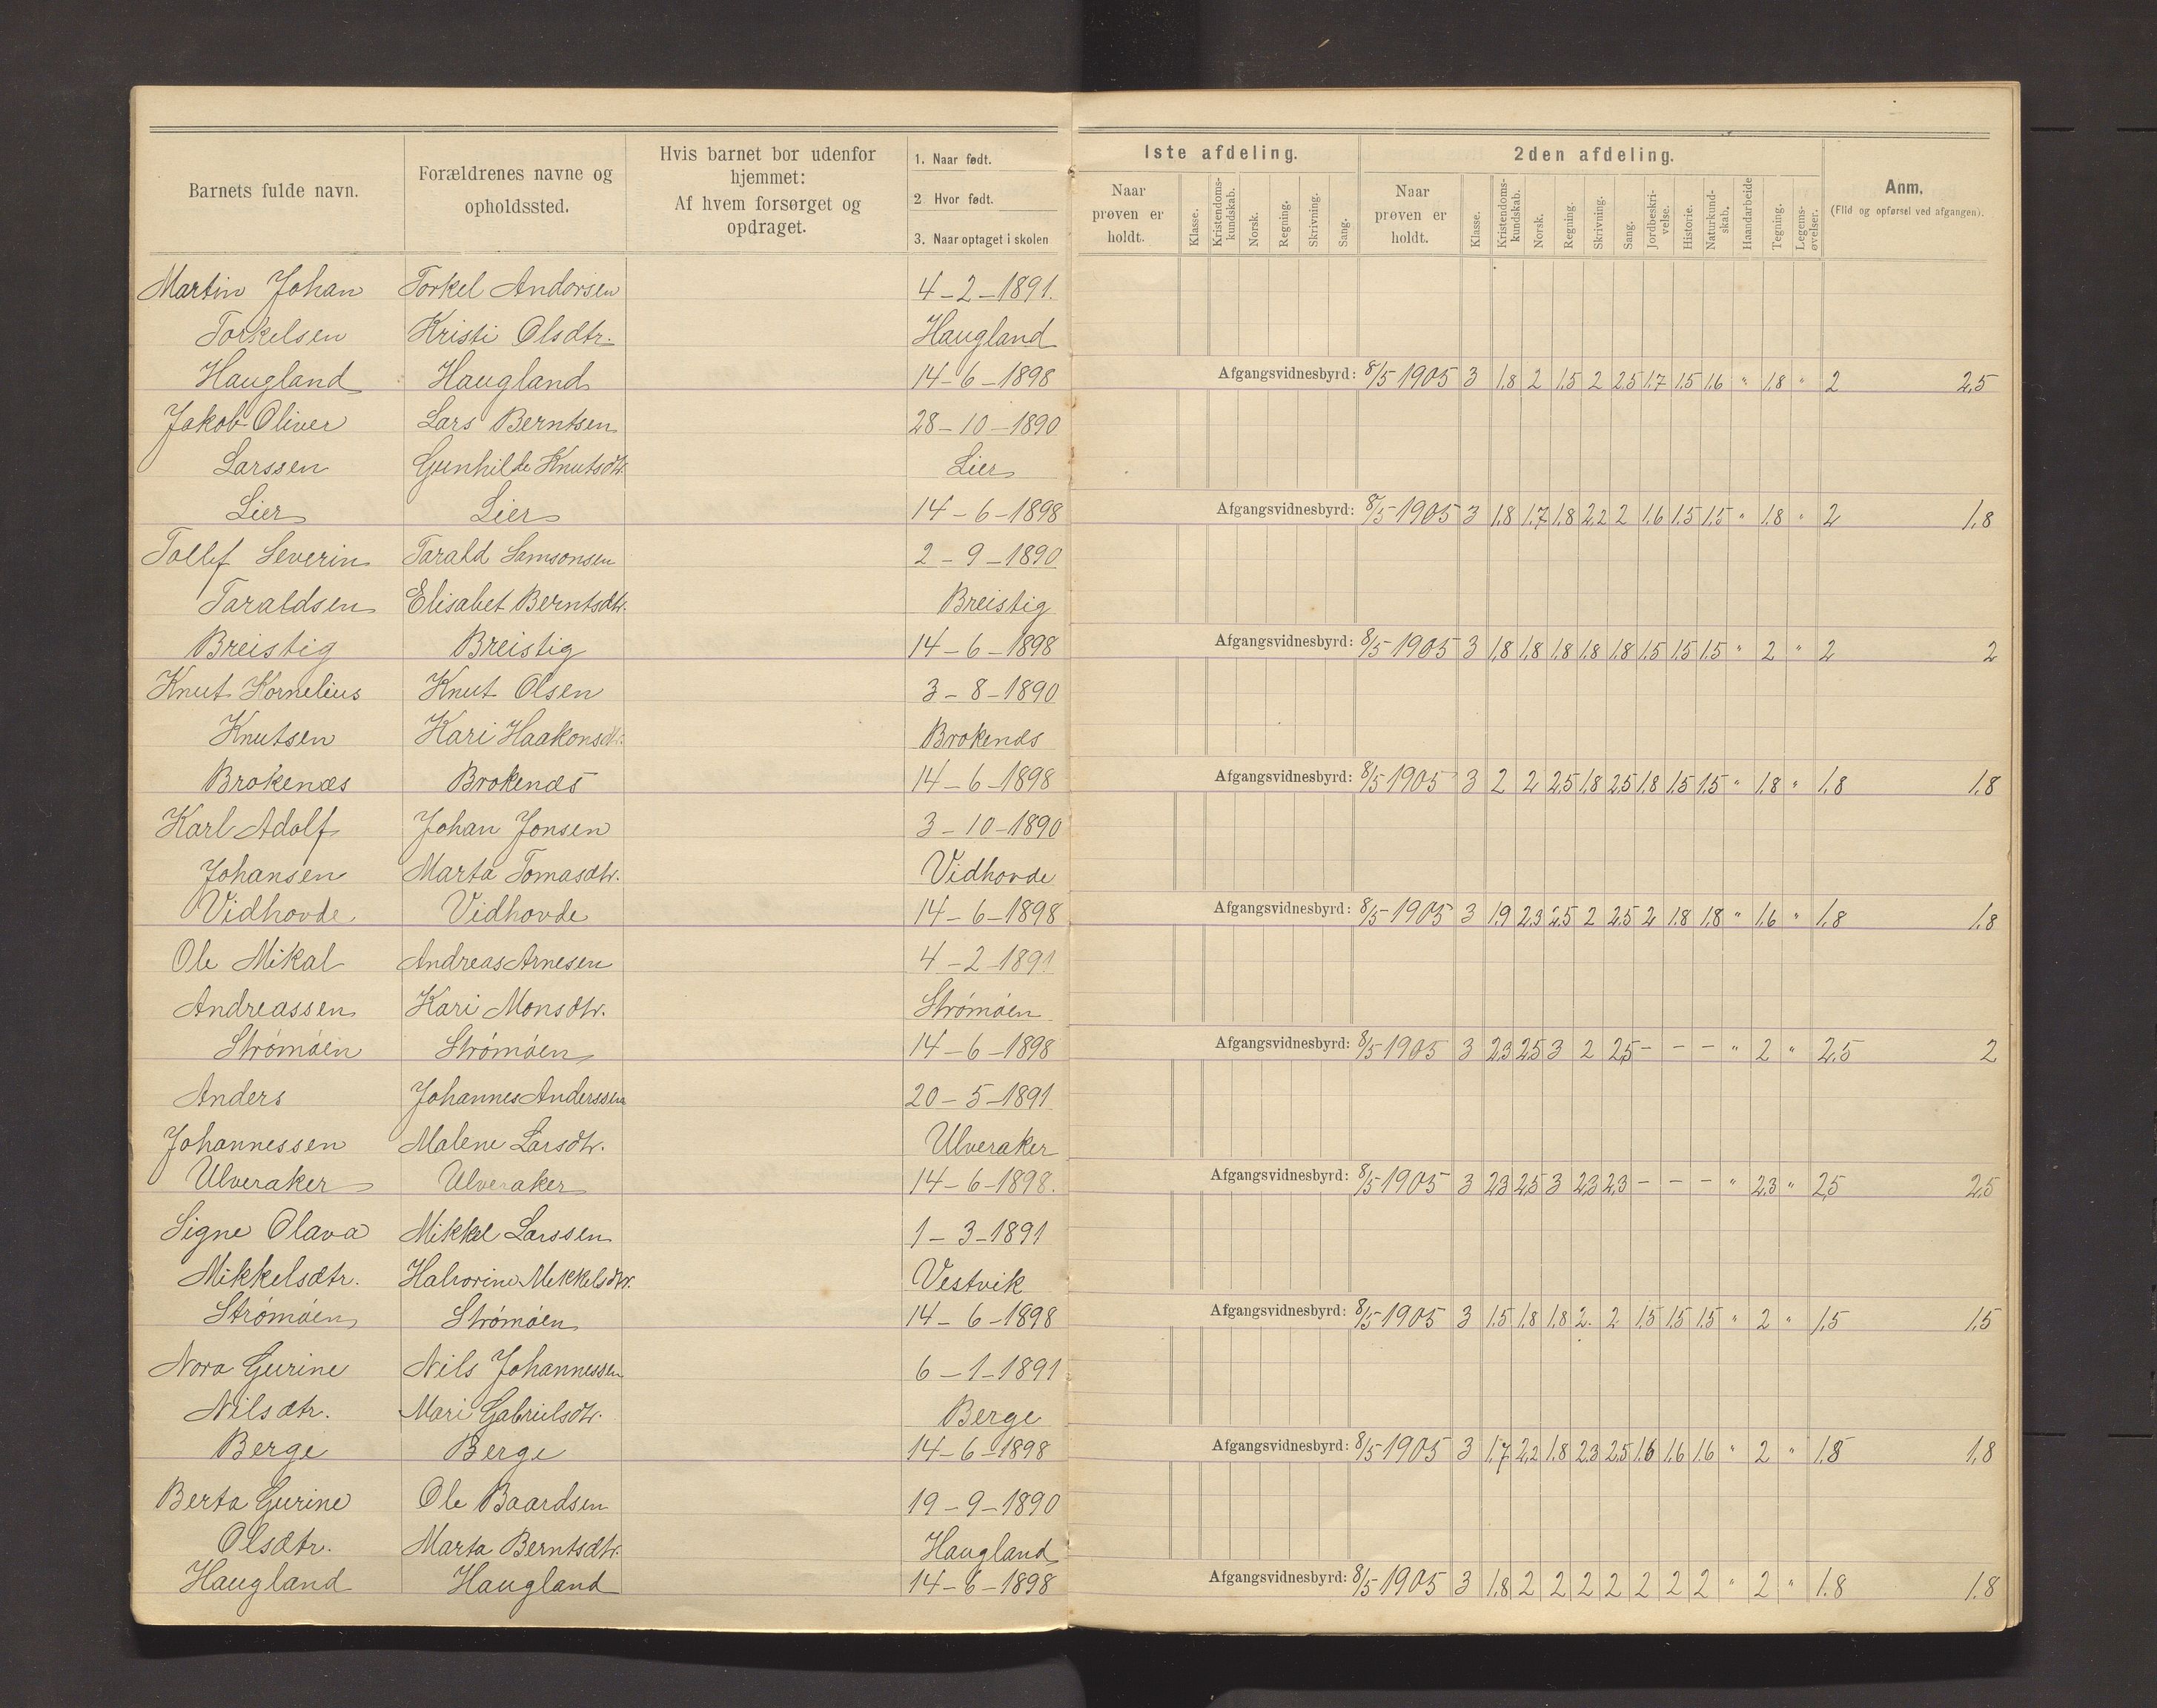 Barnets fulde navn. Forældrenes navne og opholdssted. Hvis barnet bor udenfor hjemmet: Af hvem forsørget og opdraget. 1. Naar født. 2 Hvor født. 3. Naar optaget i skolen
1ste afdeling. 2den afdeling. Anm. (Flid og opførsel ved afgangen).
Naar prøven er holdt. Klasse. Kristendoms-kundskab. Norsk. Regning. Skrivning. Sang. Naar prøven er holdt. Klasse. Kristendoms-kundskab. Norsk. Regning. Skrivning. Sang. Jordbeskri-velse. Historie. Naturkund-skab. Haandarbeide Tegning. Legems-øvelser.
Martin Johan Torkel Andorsen 4-2-1891.
Torkelsen Kristi Olsdtr. Haugland
Haugland Haugland 14-6-1898 Afgangsvidnesbyrd: 8/5 1905 3 1,8 2 1,5 2 2,5 1,7 1,5 1,6 " 1,8 " 2 2,5
Jakob Oliver Lars Berntsen 28-10-1890
Larssen Gunhilde Knutsdtr. Lier
Lier Lier 14-6-1898 Afgangsvidnesbyrd: 8/5 1905 3 1,8 1,7 1,8 2,2 2 1,6 1,5 1,5 " 1,8 " 2 1,8
Tollef Severin Tarald Samsonsen 2-9-1890
Taraldsen Elisabet Berntsdtr. Breistig
Breistig Breistig 14-6-1898 Afgangsvidnesbyrd: 8/5 1905 3 1,8 1,8 1,8 1,8 1,8 1,5 1,5 1,5 " 2 " 2 2
Knut Kornelius Knut Olsen 3-8-1890
Knutsen Kari Haakonsdtr. Brokenes
Brokenæs Brokenæs 14-6-1898 Afgangsvidnesbyrd: 8/5 1905 3 2 2 2,5 1,8 2,5 1,8 1,5 1,5 " 1,8 " 1,8 1,8
Karl Adolf Johan Jonsen 3-10-1890
Johansen Marta Tomasdtr. Vidhovde
Vidhovde Vidhovde 14-6-1898 Afgangsvidnesbyrd: 8/5 1905 3 1,9 2,3 2,5 2 2,5 2 1,8 1,8 " 1,6 " 1,8 1,8
Ole Mikal Andreas Arnesen 4-2-1891
Andreassen Kari Monsdtr. Strømøen
Strømøen Strømøen 14-6-1898 Afgangsvidnesbyrd: 8/5 1905 3 2,3 2,5 3 2 2,5 - - - " 2 " 2,5 2
Anders Johannes Anderssen 20-5-1891
Johannessen Malene Larsdtr. Ulveraker
Ulveraker Ulveraker 14-6-1898. Afgangsvidnesbyrd: 8/5 1905 3 2,3 2,5 3 2,3 2,3 - - - " 2,3 " 2,5 2,5
Signe Olava Mikkel Larssen 1-3-1891
Mikkelsdtr. Halvorine Mikkelsdtr. Vestvik
Strømøen Strømøen 14-6-1898 Afgangsvidnesbyrd: 8/5 1905 3 1,5 1,8 1,8 2. 2 1,5 1,5 1,5 " 2 " 1,5 1,5
Nora Gurine Nils Johannessen 6-1-1891
Nilsdtr. Mari Gabrielsdtr. Berge
Berge Berge 14-6-1898 Afgangsvidnesbyrd: 8/5 1905 3 1,7 2,2 1,8 2,3 2,5 1,6 1,6 1,6 " 2 " 1,8 1,8
Berta Gurine Ole Baardsen 19-9-1890
Olsdtr. Marta Berntsdtr. Haugland
Haugland Haugland 14-6-1898 Afgangsvidnesbyrd: 8/5 1905 3 1,8 2 2 2 2 2 2 2 " 2 " 1.8 1.8